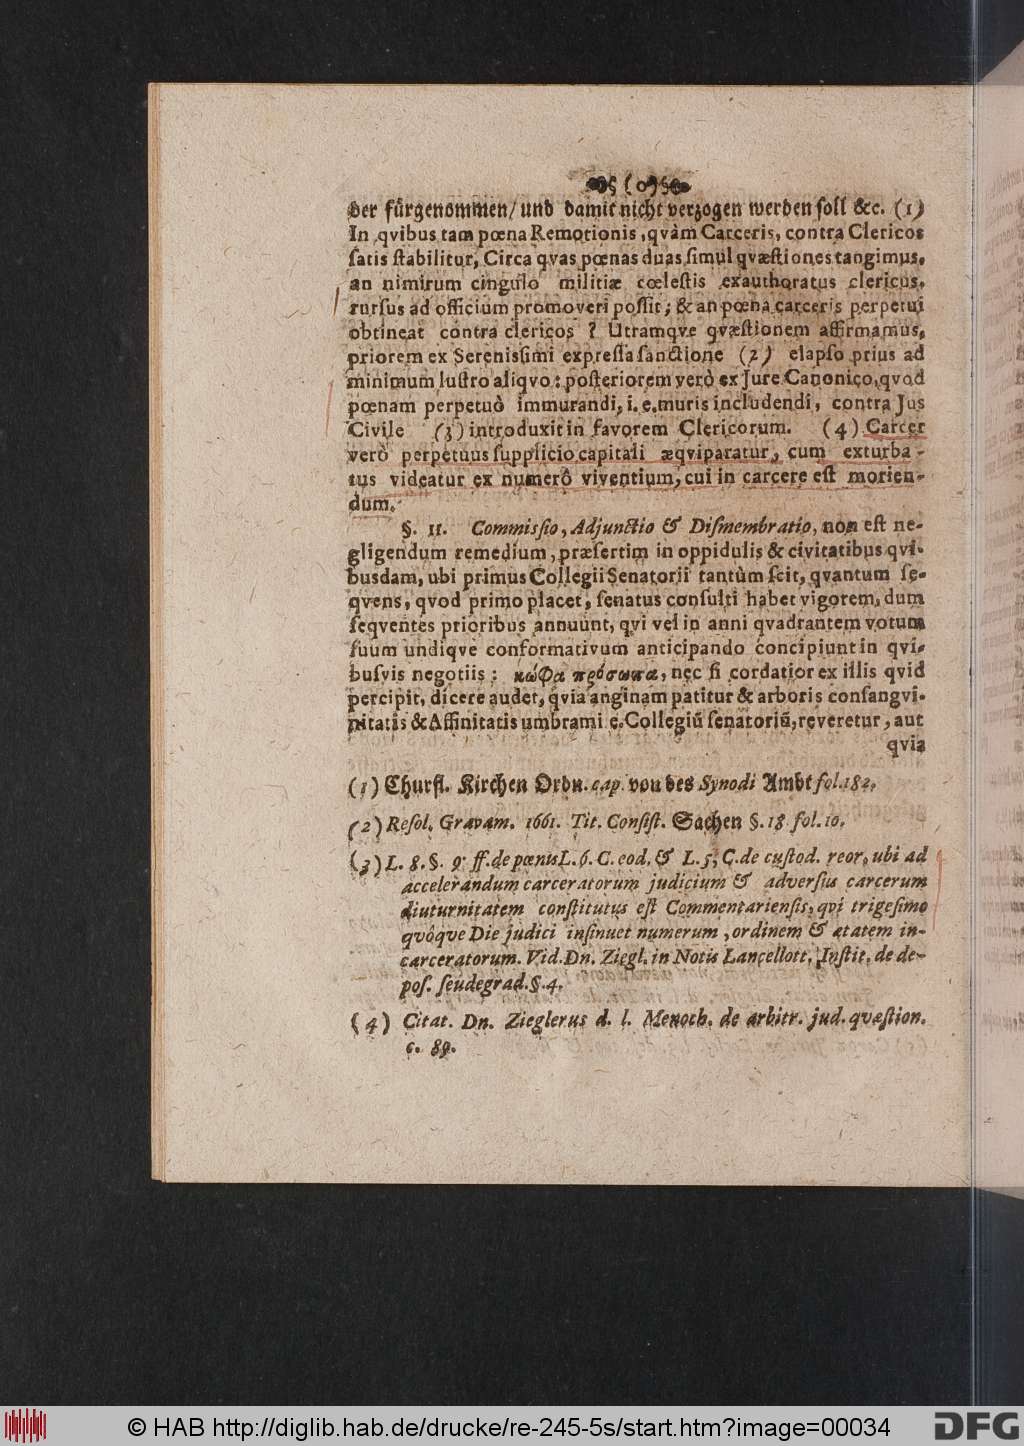 der fürgenommen/ und damit nicht verzogen werden soll &c. (1)
In qvibus tam pœna Remotionis, qvàm Carceris, contra Clericos
ſatis ſtabilitur, Circa qvas pœnas duas ſimul qvæſtiones tangimus,
an nimirum cingulo militiæ cœleſtis exauthoratus clericus,
rurſus ad officium promoveri poſſit; & an pœna carceris perpetui
obtineat contra clericos? Utramqve qvæſtionem affirmamus,
priorem ex Sereniſſimi expreſſa ſanctione (2) elapſo prius ad
minimum luſtro aliqvo: poſteriorem verò ex Jure Canonico, qvod
pœnam perpetuò immurandi, i. e. muris includendi, contra Jus
Civile (3) introduxit in favorem Clericorum. (4) Carcer
verò perpetuus ſupplicio capitali æqviparatur, cum exturba-
tus videatur ex numerô viventium, cui in carcere eſt morien-
dum.
§. 11. Commiſſio, Adjunctio & Diſmembratio, non eſt ne-
gligendum remedium, præſertim in oppidulis & civitatibus qvi-
busdam, ubi primus Collegii Senatorii tantùm ſcit, qvantum ſe-
qvens, qvod primo placet, ſenatus conſulti habet vigorem, dum
ſeqventes prioribus annuunt, qvi vel in anni qvadrantem votum
ſuum undiqve conformativum anticipando concipiunt in qvi-
buſvis negotiis: κώφα πρόσωπα, nec ſi cordatior ex illis qvid
percipit, dicere audet, qvia anginam patitur & arboris conſangvi-
nitatis & Affinitatis umbram i e. Collegiū ſenatoriū, reveretur, aut
qvia
(1) Churfl. Kirchen Ordn. cap. von des Synodi Ambt fol. 182.
(2) Reſol. Gravam. 1661. Tit. Conſiſt. Sachen §. 18 fol. 10.
(3) L. 8. §. 9. ff. de pœnis L. 6. C. eod. & L. 5, C. de cuſtod. reor, ubi ad
accelerandum carceratorum judicium & adverſus carcerum
diuturnitatem conſtitutus eſt Commentarienſis, qvi trigeſimo
qvôqve Die judici inſinuet numerum, ordinem & ætatem in-
carceratorum. Vid. Dn. Ziegl. in Notis Lancellott. Inſtit. de de-
poſ. ſeu degrad. §. 4.
(4) Citat. Dn. Zieglerus d. l. Menoch. de arbitr. jud. qvæſtion.
c. 89.
© HAB http://diglib.hab.de/drucke/re-245-5s/start.htm?image=00034
DFG